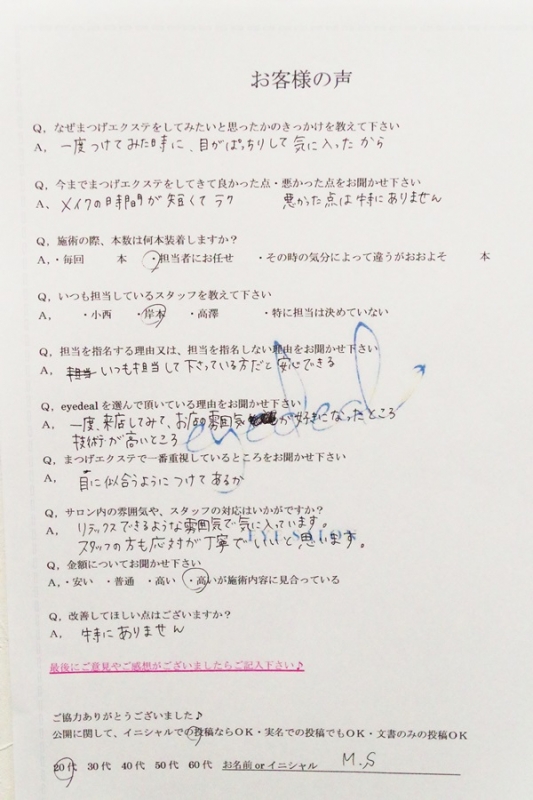 お客様の声
Q，なぜまつげエクステをしてみたいと思ったかのきっかけを教えて下さい
A，一度つけてみた時に、目がぱっちりして気に入ったから
Q，今までまつげエクステをしてきて良かった点・悪かった点をお聞かせ下さい
A，メイクの時間が短くてラク 悪かった点は特にありません
Q，施術の際、本数は何本装着しますか？
A，・毎回 本 ・担当者にお任せ ・その時の気分によって違うがおおよそ 本
Q，いつも担当しているスタッフを教えて下さい
A， ・小西 ・岸本 ・高澤 ・特に担当は決めていない
Q，担当を指名する理由又は、担当を指名しない理由をお聞かせ下さい
A，いつも担当して下さっている方だと安心できる
Q，eyedealを選んで頂いている理由をお聞かせ下さい
A，一度、来店してみて、お店の雰囲気が好きになったところ
技術が高いところ
Q，まつげエクステで一番重視しているところをお聞かせ下さい
A，目に似合うようにつけてあるか
Q，サロン内の雰囲気や、スタッフの対応はいかがですか？
A，リラックスできるような雰囲気で気に入っています。
スタッフの方も応対が丁寧でいいと思います。
eyedeal
EYE SALON
Q，金額についてお聞かせ下さい
A，・安い ・普通 ・高い ・高いが施術内容に見合っている
Q，改善してほしい点はございますか？
A，特にありません
最後にご意見やご感想がございましたらご記入下さい♪
ご協力ありがとうございました♪
公開に関して、イニシャルでの投稿ならOK・実名での投稿でもOK・文書のみの投稿OK
20代 30代 40代 50代 60代 お名前orイニシャル M.S